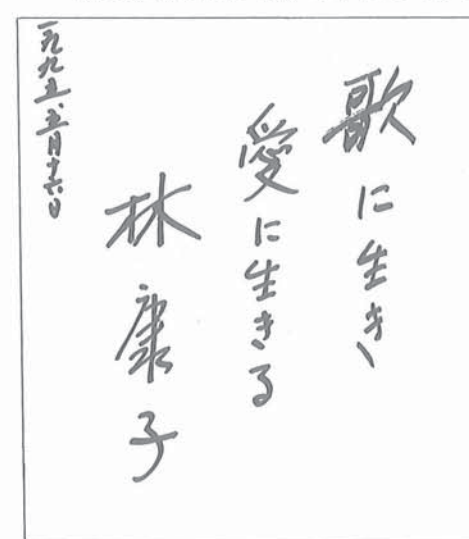 歌に生き、
愛に生きる
林康子
一九九五、五月十六日